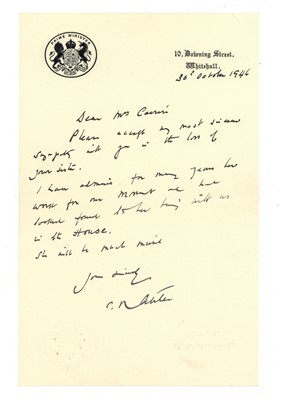 PRIME MINISTER
10, Downing Street,
Whitehall.
30th October 1946
Dear Mrs
Please accept my most sincere
sympathy with you in the loss of
your sister.
I have admired for many years her
work for our movement and have
looked forward to her being with us
in the House.
She will be much missed
Yours sincerely
C R Attlee